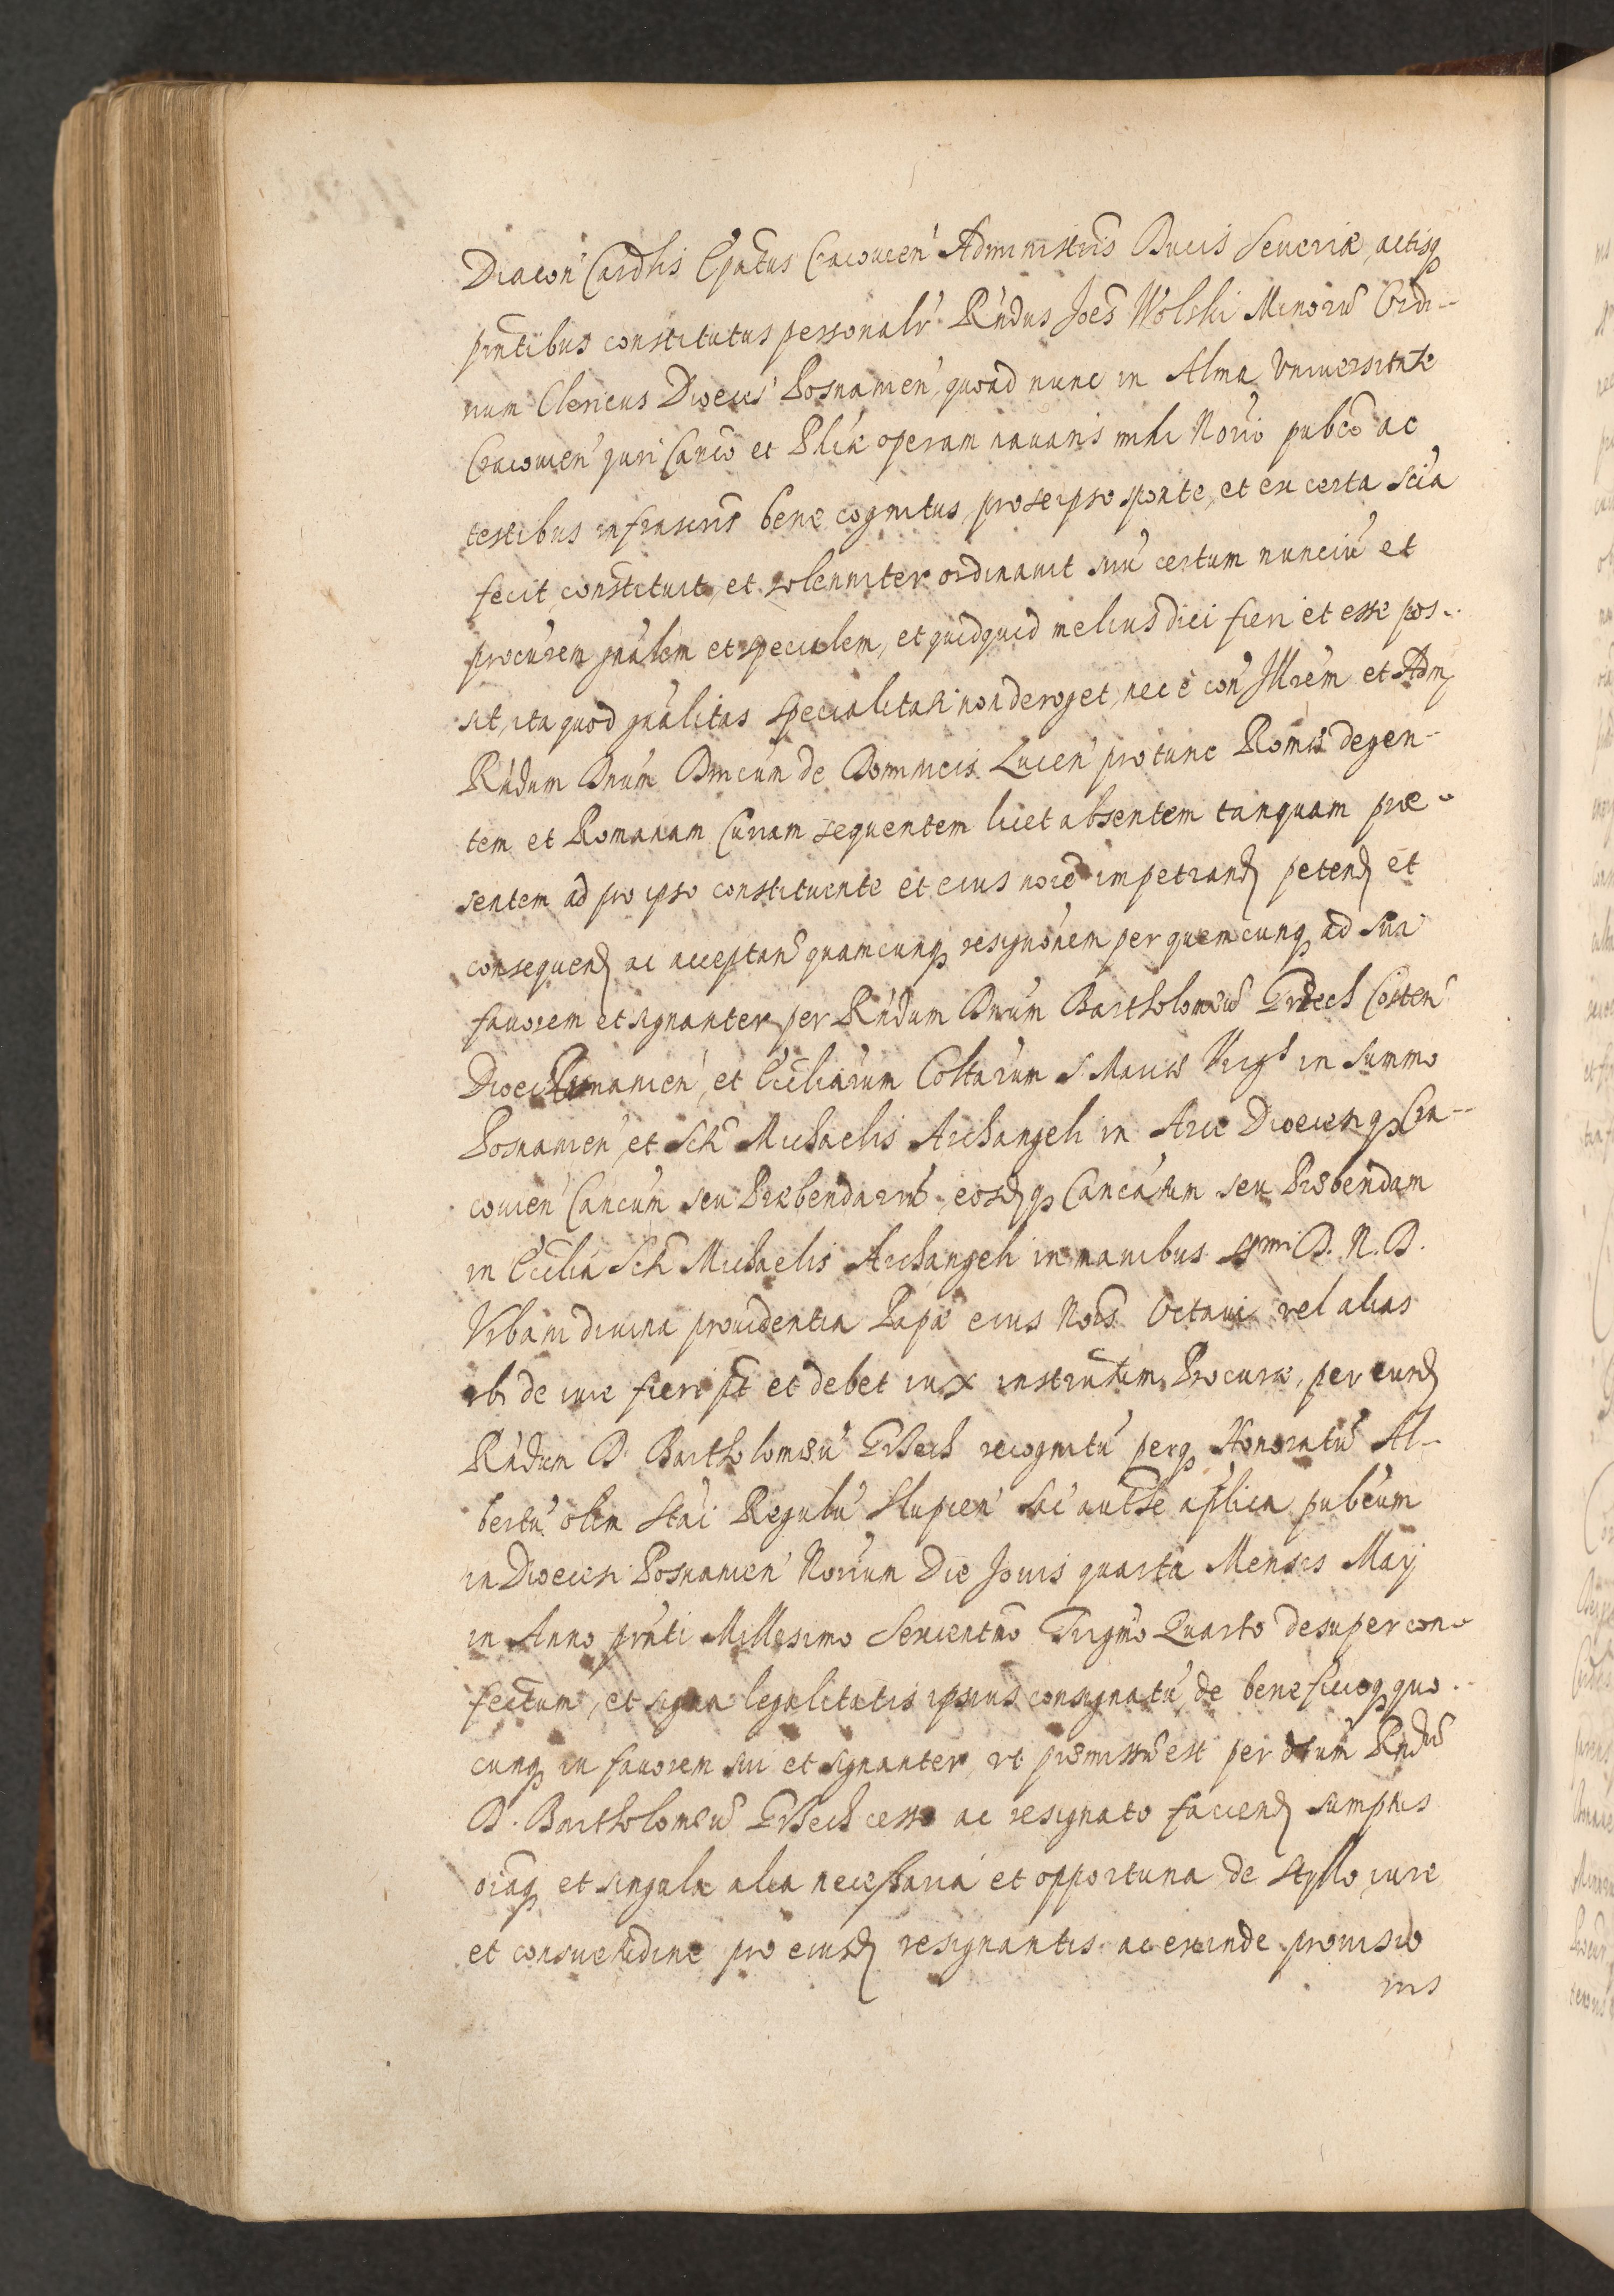 Diacon' Cardlis Epatus Cracouien' Administris Ducis Seueriæ, actisq
pñtibus constitutus personalr' Rndus Joes Wolski Minorũ Ordi-
num Clericus Dioecis' Posnanien', quoad nunc in Alma Vniuersitate
Cracouien' juri Canco et Phiæ operam nauans mihi Norio pubco ac
testibus infrascris bene cognitus, pro seipso sponte, et ex certa scia
fecit, constituit, et solenniter ordinauit suũ certum nunciũ et
procurem gnalem et specialem, et quidquid melius dici fieri et esse pos-
sit, ita quod gnalitas specialitati non deroget, nec è con' Jllrem et Adm
Rndum Dnum Dmcum de Dominicis Lucen' pro tunc Romæ degen-
tem et Romanam Curiam sequentem licet absentem tanquam præ-
sentem ad pro ipso constituente et eius noie impetrand petend et
consequend ac acceptand quamcunq resignonem per quemcunq ad sui
fauorem et signanter per Rndum Dnum Bartholomeũ Costen'
Dioecis Posnanien', et Eccliarum Coltarum S. Mariæ Virgs in Summo
Posnanien' et Scti Michaelis Archangeli in Arce Dioecisq Cra-
couien' Cancum seu Præbendariũ, eosdq Cancatum seu Præbendam
in Ecclia Scti Michaelis Archangeli in manibus Ssmi D. N. D.
Vrbani diuina prouidentia Papæ eius Nois Octaui vel alias
vbi de iure fieri pt et debet iux instrutum Procuræ, per eund
Rndum D. Bartholomeũ recognitũ perq Honoratũ Al-
bertũ olim Stai Regulũ Slupien' Sac' autte aplica pubcum
in Dioecesi Posnanien' Norium Die Jouis quarta Mensis Maij
in Anno pñti Millesimo Sexcentmo Trigmo Quarto desuper con-
fectum, et signa legalitatis ipsius consignatũ, de beneficioq quo-
cunq in fauorem sui et signanter, vt præmissũ est per dtum Rndũ
D. Bartholomeũ cesso ac resignato faciend sumptus
oiaq et singula alia necessaria et opportuna de styllo iure
et consuetudine pro eiusd resignantis ac exinde prouisio
nis